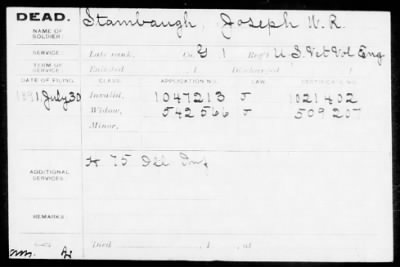 DEAD.
NAME OF SOLDIER:
Stambaugh, Joseph W. R.
SERVICE:
Late rank, Co. G 1 Reg't U.S. Vet Vol Eng
TERM OF SERVICE:
Enlisted 1 Discharged 1
DATE OF FILING. CLASS. APPLICATION NO. LAW. CERTIFICATE NO.
1891, July 30 Invalid, 1047213 J 1021402
Widow, 542566 J 509207
Minor,
ADDITIONAL SERVICES:
H 75 Ill Inf
REMARKS:
Died , 1 , at